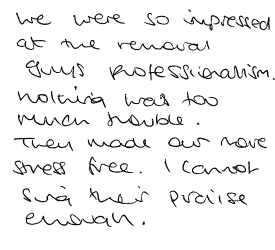 we were so impressed
at the removal
guys professionalism.
nothing was too
much trouble.
They made our move
stress free. I cannot
sing their praise
enough.